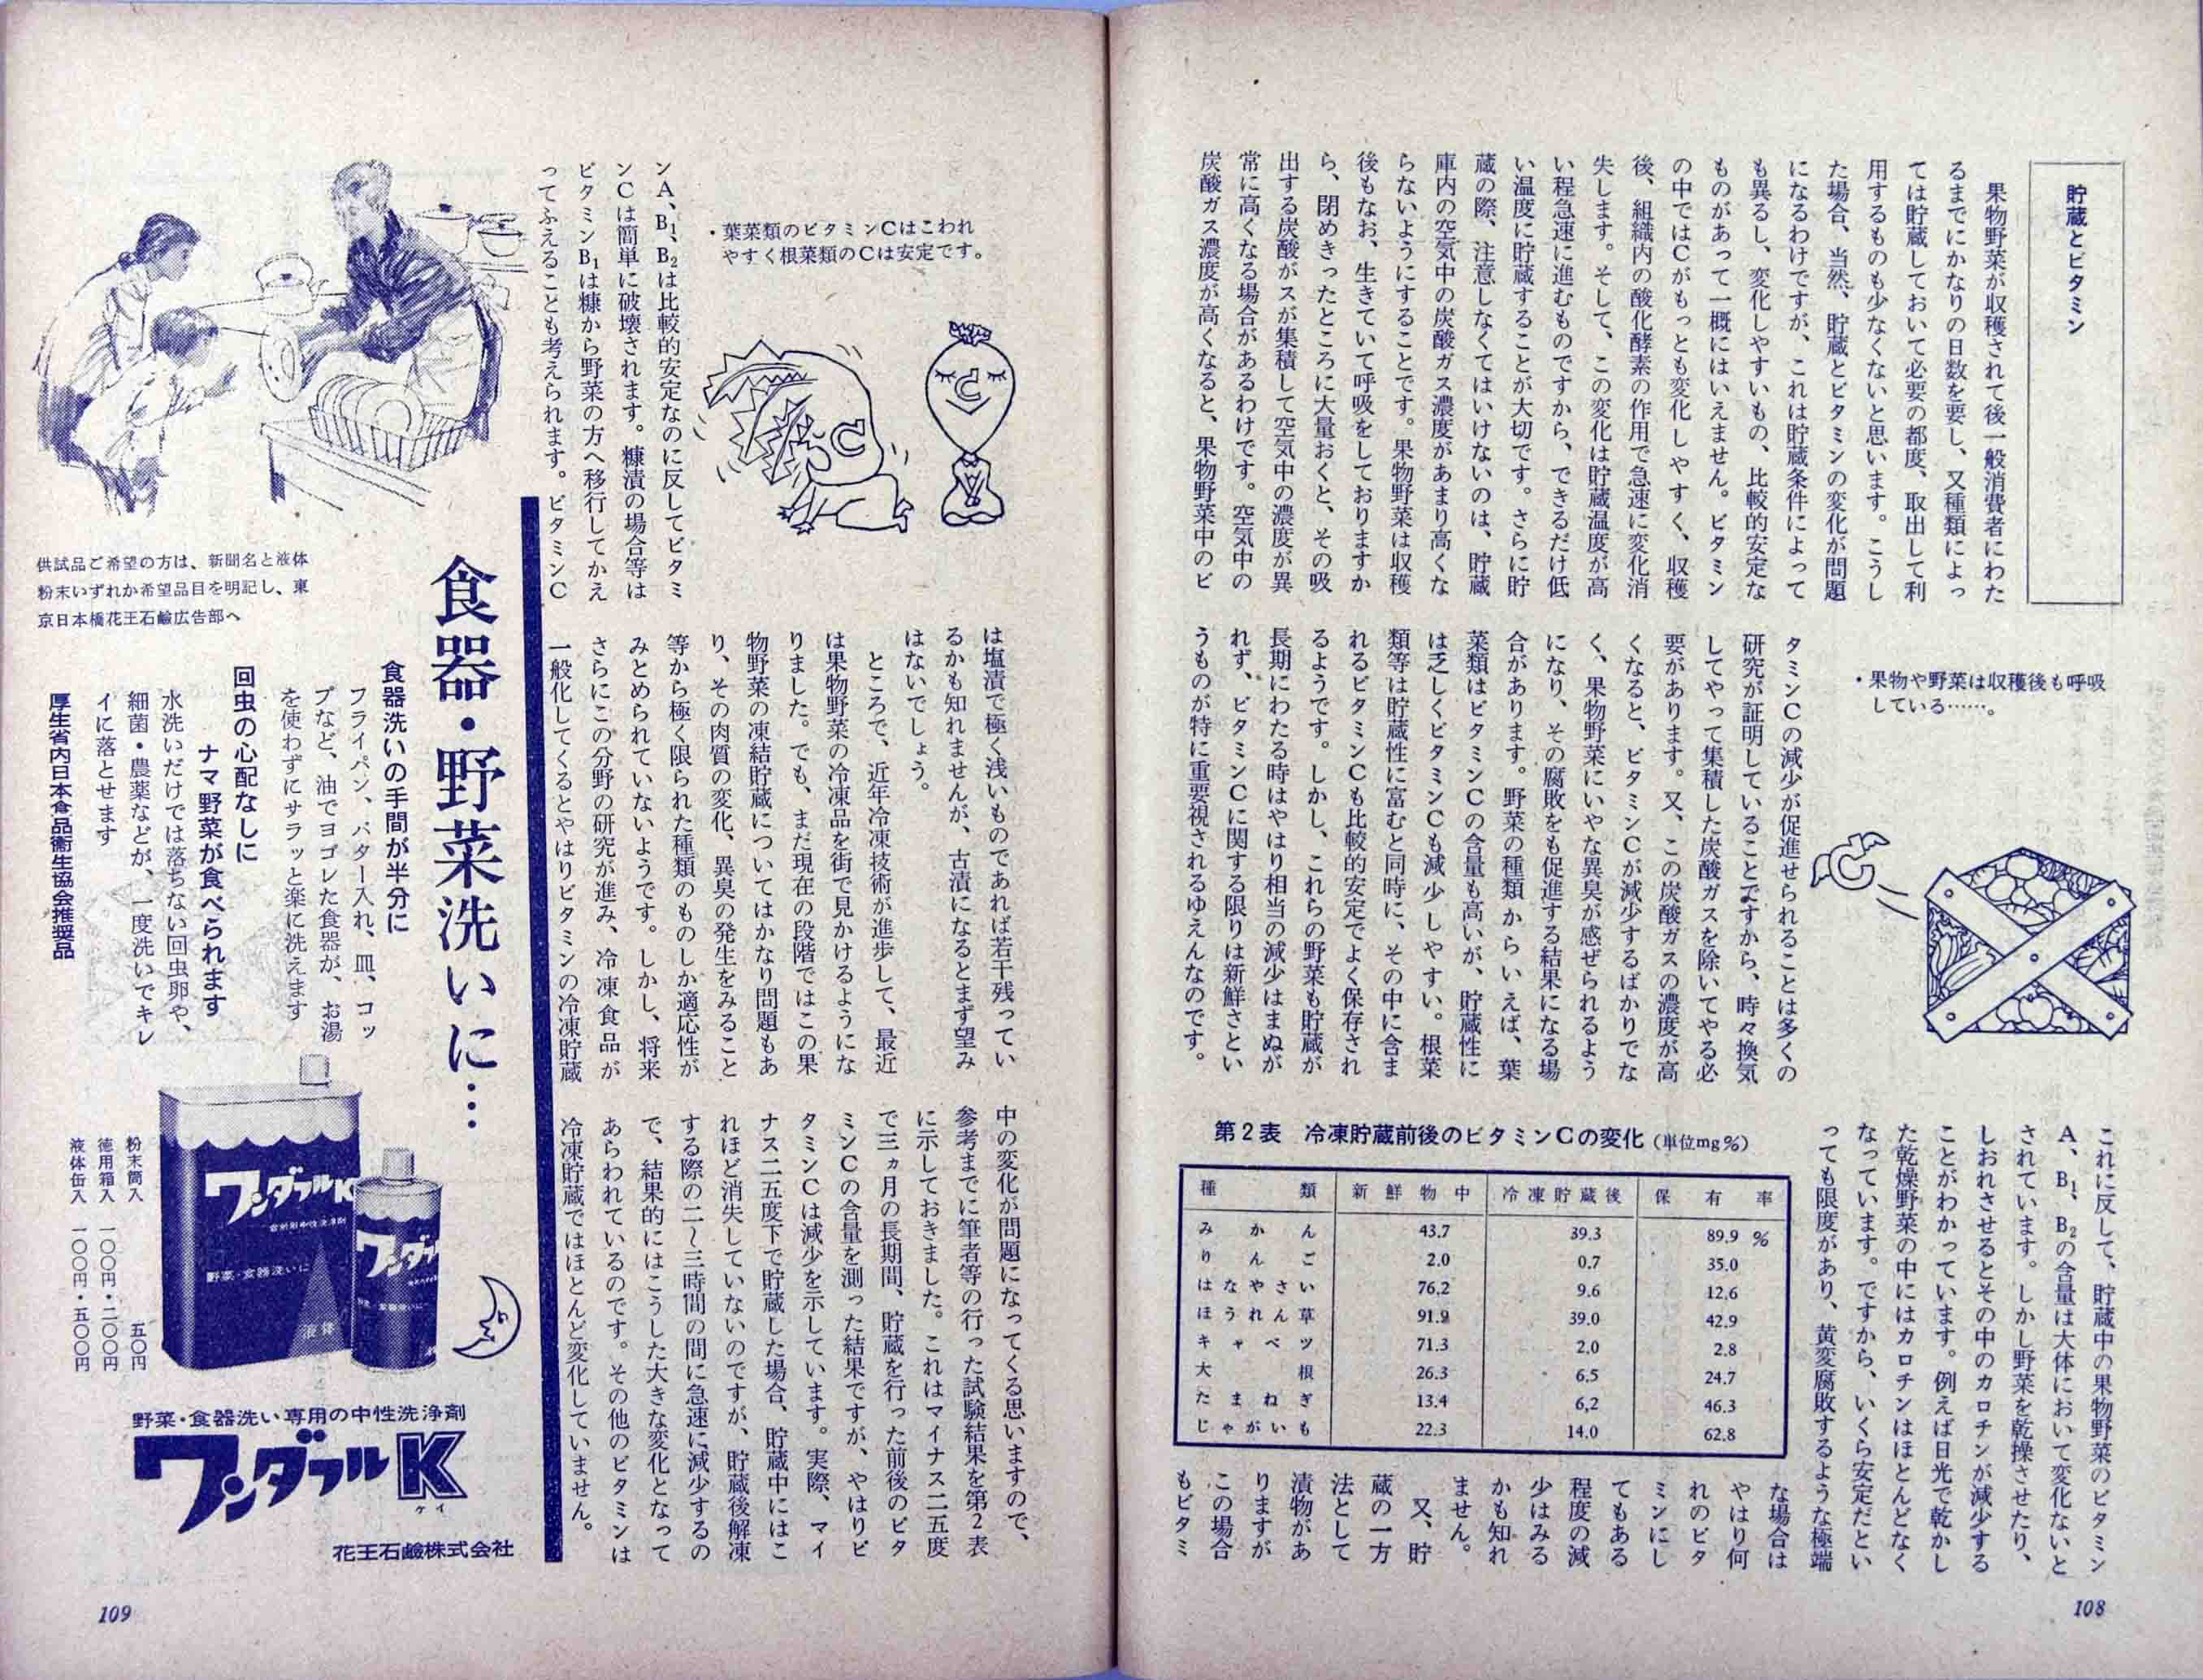 貯蔵とビタミン
果物野菜が収穫されて後一般消費者にわた
るまでにかなりの日数を要し、又種類によっ
ては貯蔵しておいて必要の都度、取出して利
用するものも少なくないと思います。こうし
た場合、当然、貯蔵とビタミンの変化が問題
になるわけですが、これは貯蔵条件によって
も異るし、変化しやすいもの、比較的安定な
ものがあって一概にはいえません。ビタミン
の中ではCがもっとも変化しやすく、収穫
後、組織内の酸化酵素の作用で急速に変化消
失します。そして、この変化は貯蔵温度が高
い程急速に進むものですから、できるだけ低
い温度に貯蔵することが大切です。さらに貯
蔵の際、注意しなくてはいけないのは、貯蔵
庫内の空気中の炭酸ガス濃度があまり高くな
らないようにすることです。果物野菜は収穫
後もなお、生きていて呼吸をしておりますか
ら、閉めきったところに大量おくと、その吸
出する炭酸がスが集積して空気中の濃度が異
常に高くなる場合があるわけです。空気中の
炭酸ガス濃度が高くなると、果物野菜中のビ
・果物や野菜は収穫後も呼吸
している……。
C
タミンCの減少が促進せられることは多くの
研究が証明していることですから、時々換気
してやって集積した炭酸ガスを除いてやる必
要があります。又、この炭酸ガスの濃度が高
くなると、ビタミンCが減少するばかりでな
く、果物野菜にいやな異臭が感ぜられるよう
になり、その腐敗をも促進する結果になる場
合があります。野菜の種類からいえば、葉
菜類はビタミンCの含量も高いが、貯蔵性に
は乏しくビタミンCも減少しやすい。根菜
類等は貯蔵性に富むと同時に、その中に含ま
れるビタミンCも比較的安定でよく保存され
るようです。しかし、これらの野菜も貯蔵が
長期にわたる時はやはり相当の減少はまぬが
れず、ビタミンCに関する限りは新鮮さとい
うものが特に重要視されるゆえんなのです。
これに反して、貯蔵中の果物野菜のビタミン
A、B₁、B₂の含量は大体において変化ないと
されています。しかし野菜を乾操させたり、
しおれさせるとその中のカロチンが減少する
ことがわかっています。例えば日光で乾かし
た乾燥野菜の中にはカロチンはほとんどなく
なっています。ですから、いくら安定だとい
っても限度があり、黄変腐敗するような極端
な場合は
やはり何
れのビタ
ミンにし
てもある
程度の減
少はみる
かも知れ
ません。
又、貯
蔵の一方
法として
漬物があ
りますが
この場合
もビタミ
第2表 冷凍貯蔵前後のビタミンCの変化 (単位mg%)
種類 新鮮物中 冷凍貯蔵後 保有率
みかん 43.7 39.3 89.9 %
りんご 2.0 0.7 35.0
はなやさい 76.2 9.6 12.6
ほうれん草 91.9 39.0 42.9
キャベツ 71.3 2.0 2.8
大根 26.3 6.5 24.7
たまねぎ 13.4 6.2 46.3
じゃがいも 22.3 14.0 62.8
108
・葉菜類のビタミンCはこわれ
やすく根菜類のCは安定です。
C
C
ンA、B₁、B₂は比較的安定なのに反してビタミ
ンCは簡単に破壊されます。糠漬の場合等は
ビタミンB₁は糠から野菜の方へ移行してかえ
ってふえることも考えられます。ビタミンC
は塩漬で極く浅いものであれば若干残ってい
るかも知れませんが、古漬になるとまず望み
はないでしょう。
ところで、近年冷凍技術が進歩して、最近
は果物野菜の冷凍品を街で見かけるようにな
りました。でも、まだ現在の段階ではこの果
物野菜の凍結貯蔵についてはかなり問題もあ
り、その肉質の変化、異臭の発生をみること
等から極く限られた種類のものしか適応性が
みとめられていないようです。しかし、将来
さらにこの分野の研究が進み、冷凍食品が
一般化してくるとやはりビタミンの冷凍貯蔵
中の変化が問題になってくる思いますので、
参考までに筆者等の行った試験結果を第2表
に示しておきました。これはマイナス二五度
で三ヵ月の長期間、貯蔵を行った前後のビタ
ミンCの含量を測った結果ですが、やはりビ
タミンCは減少を示しています。実際、マイ
ナス二五度下で貯蔵した場合、貯蔵中にはこ
れほど消失していないのですが、貯蔵後解凍
する際の二〜三時間の間に急速に減少するの
で、結果的にはこうした大きな変化となって
あらわれているのです。その他のビタミンは
冷凍貯蔵ではほとんど変化していません。
食器・野菜洗いに…
供試品ご希望の方は、新聞名と液体
粉末いずれか希望品目を明記し、東
京日本橋花王石鹼広告部へ
食器洗いの手間が半分に
フライパン、バター入れ、皿、コッ
プなど、油でヨゴレた食器が、お湯
を使わずにサラッと楽に洗えます
回虫の心配なしに
ナマ野菜が食べられます
水洗いだけでは落ちない回虫卵や、
細菌・農薬などが、一度洗いでキレ
イに落とせます
厚生省内日本食品衞生協会推奨品
ワンダフルK
野菜・食器洗いに
液体
粉末筒入 五〇円
徳用箱入 一〇〇円・二〇〇円
液体缶入 一〇〇円・五〇〇円
野菜・食器洗い専用の中性洗浄剤
ワンダフルK
ケイ
花王石鹼株式会社
109